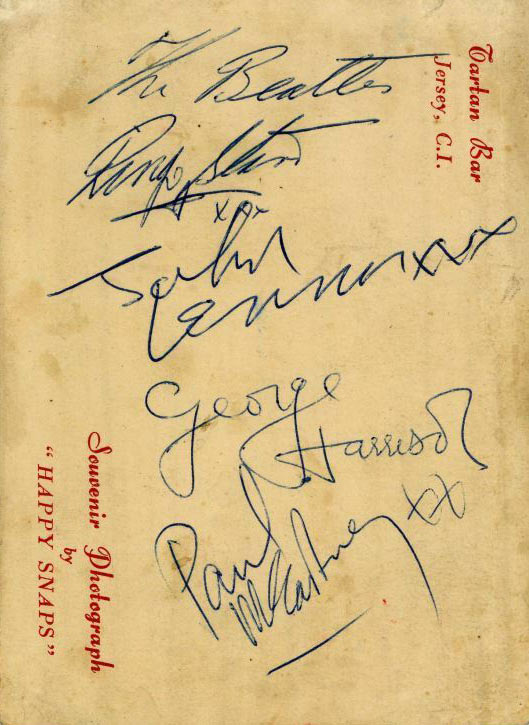 The Beatles
Ringo Starr
xox
John
Lennon xxx
George
Harrison
Paul
McCartney xx
Tartan Bar
Jersey, C.I.
Souvenir Photograph
by
“HAPPY SNAPS”